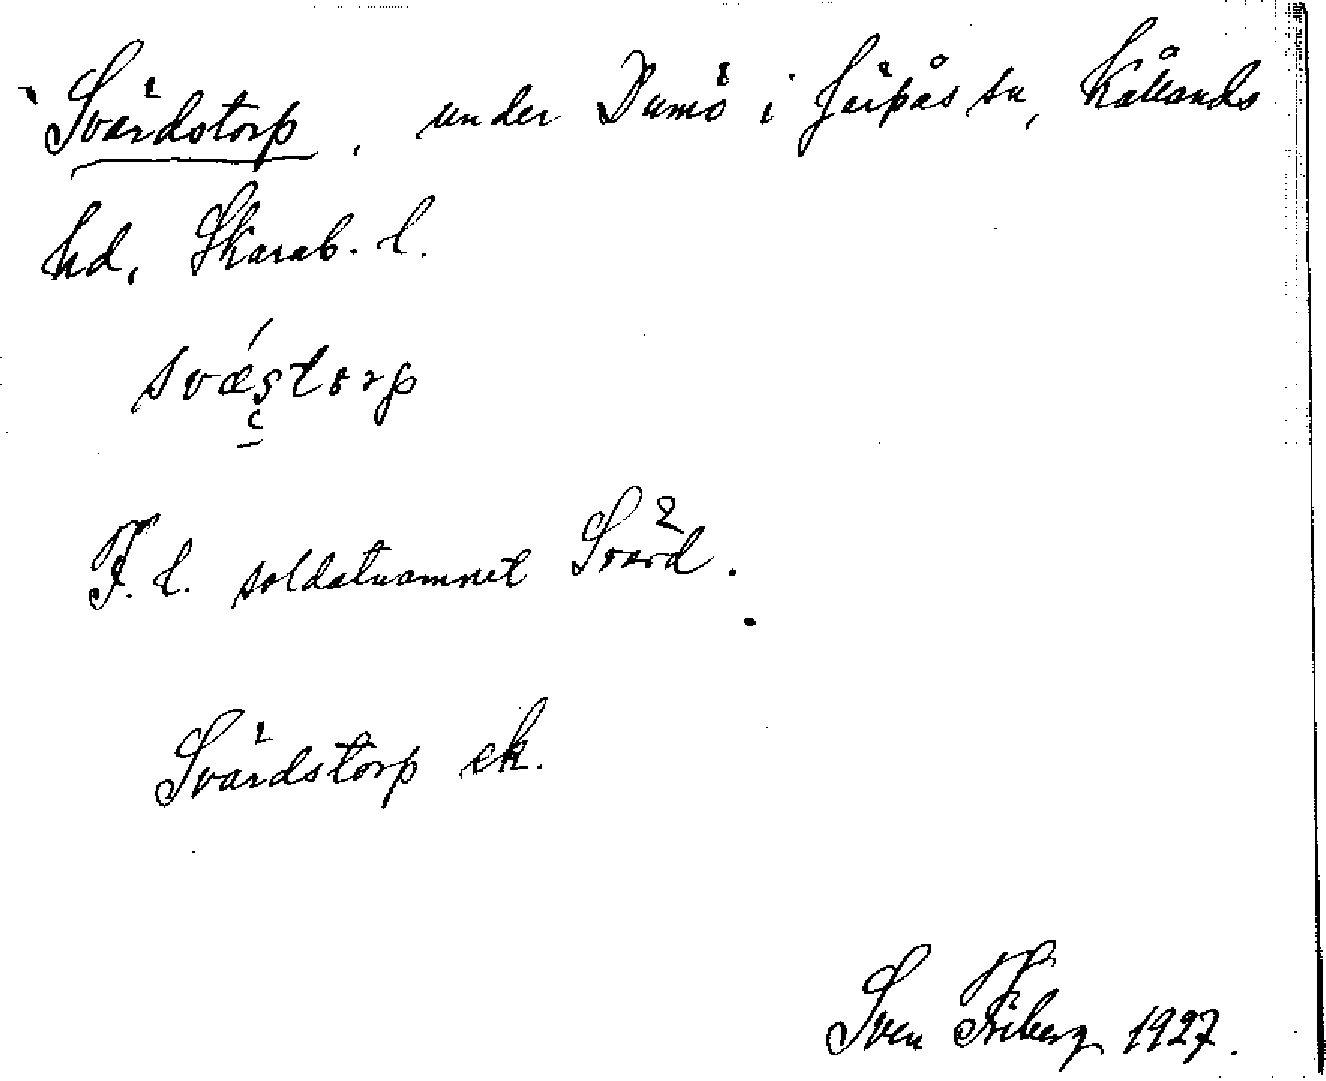 Svärdstorp, under Dumö i Järpås sn, Kållands
hd, Skarab. l.
svæstorp
F. l. soldatnamnet Svärd.
Svärdstorp ek.
Sven Friberg 1927.